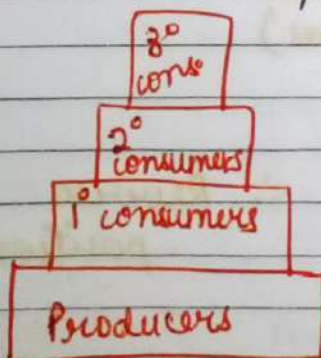 3°
cons.
2°
consumers
1° consumers
Producers